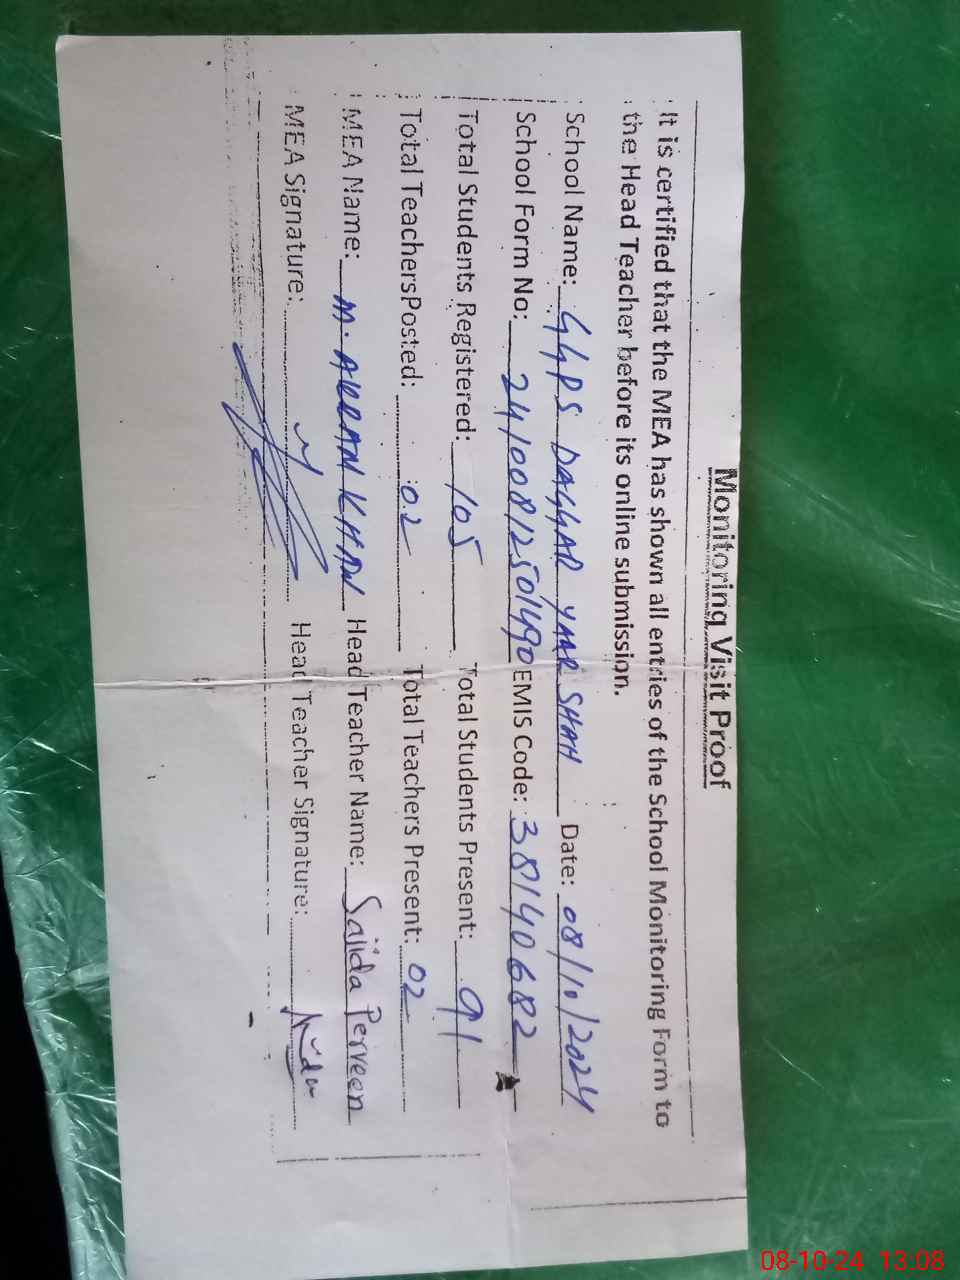 Monitoring Visit Proof
It is certified that the MEA has shown all entries of the School Monitoring Form to
the Head Teacher before its online submission.
School Name: GGPS DAGGAR YAAR SHAH Date: 08/10/2024
School Form No: 24100812501490 EMIS Code: 38140682
Total Students Registered: 105 Total Students Present: 91
Total TeachersPosted: 02 Total Teachers Present: 02
MEA Name: M. AKRAM KHAN Head Teacher Name: Sajida Perveen
MEA Signature: Head Teacher Signature:
08-10-24 13:08